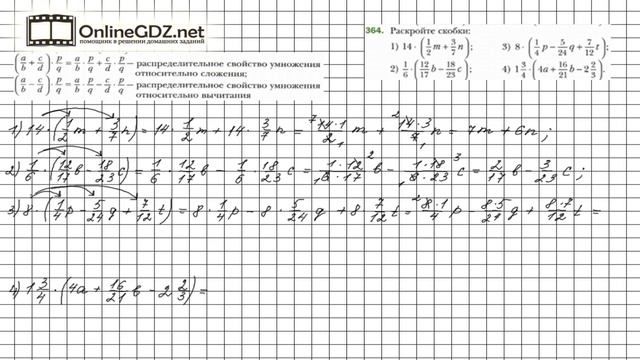 OnlineGDZ.net
помощник в решении домашних заданий
(a/b + c/d) · p/q = a/b · p/q + c/d · p/q — распределительное свойство умножения
относительно сложения;
(a/b − c/d) · p/q = a/b · p/q − c/d · p/q — распределительное свойство умножения
относительно вычитания
364. Раскройте скобки:
1) 14 · (1/2 m + 3/7 n);
3) 8 · (1/4 p − 5/24 q + 7/12 t);
2) 1/6 · (12/17 b − 18/23 c);
4) 1 3/4 · (4a + 16/21 b − 2 2/3).
1) 14 · (1/2 m + 3/7 n) = 14 · 1/2 m + 14 · 3/7 n = 14·1/2 m + 14·3/7 n = 7m + 6n;
2) 1/6 · (12/17 в − 18/23 c) = 1/6 · 12/17 в − 1/6 · 18/23 c = 1·12/6·17 в − 1·18/6·23 c = 2/17 в − 3/23 c;
3) 8 · (1/4 p − 5/24 q + 7/12 t) = 8 · 1/4 p − 8 · 5/24 q + 8 7/12 t = 8·1/4 p − 8·5/21 q + 8·7/12 t =
4) 1 3/4 · (4a + 16/21 в − 2 2/3) =